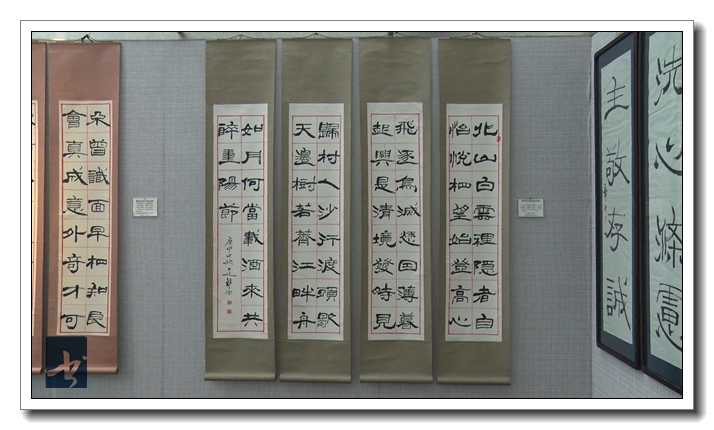 洗心滌慮
主敬存誠
北山白雲裡隱者自
怡悅相望始登高心
飛逐鳥滅愁因薄暮
起興是清境發時見
歸村人沙行渡頭歇
天邊樹若薺江畔舟
如月何當載酒來共
醉重陽節
朵曾識面早相知良
會真成意外奇才可
书